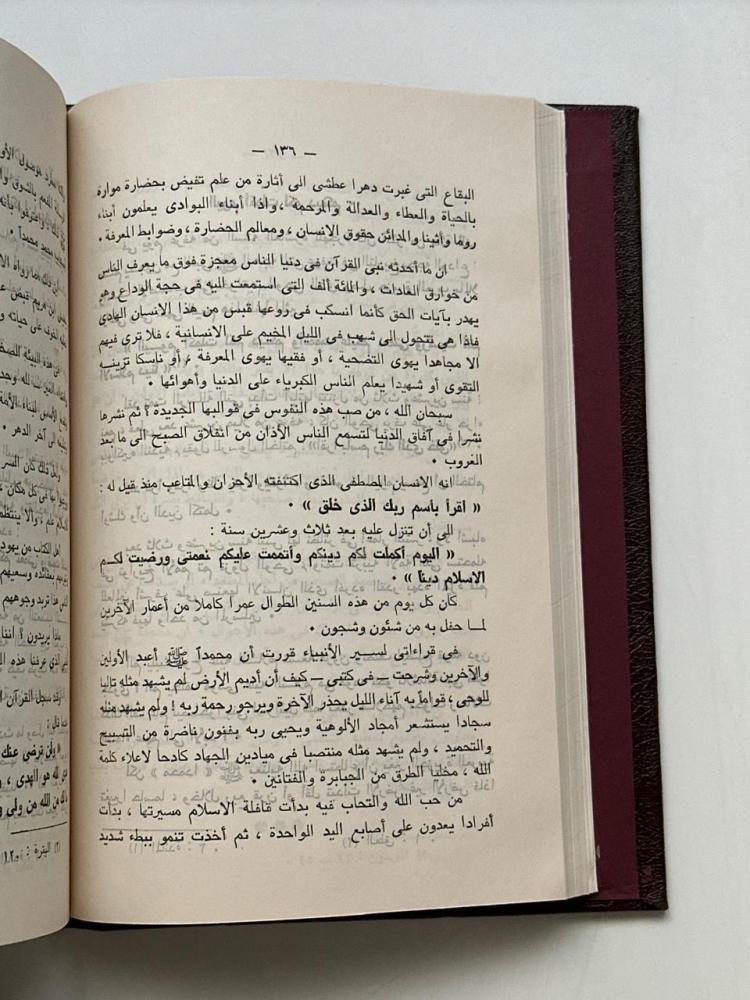 — ١٣٦ —
البقاع التى غبرت دهرا عطشى الى أثارة من علم تفيض بحضارة موارة
بالحياة والعطاء والعدالة والمرحمة ، واذا أبناء البوادى يعلمون أبناء
روما وأثينا والمدائن حقوق الانسان ، ومعالم الحضارة ، وضوابط المعرفة •
ان ما أحدثه نبى القرآن فى دنيا الناس معجزة فوق ما يعرف الناس
من خوارق العادات ، والمائة ألف التى استمعت اليه فى حجة الوداع وهو
يهدر بآيات الحق كأنما انسكب فى روعها قبس من هذا الانسان الهادى
فاذا هى تتحول الى شهب فى الليل المخيم على الانسانية ، فلا ترى فيهم
الا مجاهدا يهوى التضحية ، أو فقيها يهوى المعرفة ، أو ناسكا تزينه
التقوى أو شهيدا يعلم الناس الكبرياء على الدنيا وأهوائها •
سبحان الله ، من صب هذه النفوس فى قوالبها الجديدة ؟ ثم نشرها
نشرا فى آفاق الدنيا لتسمع الناس الأذان من انفلاق الصبح الى ما بعد
الغروب •
انه الانسان المصطفى الذى اكتنفته الأحزان والمتاعب منذ قيل له :
« اقرأ باسم ربك الذى خلق » •
الى أن تنزل عليه بعد ثلاث وعشرين سنة :
« اليوم أكملت لكم دينكم وأتممت عليكم نعمتى ورضيت لكم
الاسلام ديناً » •
كان كل يوم من هذه السنين الطوال عمرا كاملا من أعمار الآخرين
لما حفل به من شئون وشجون •
فى قراءاتى لسير الأنبياء قررت أن محمداً ﷺ أعبد الأولين
والآخرين وشرحت — فى كتبى — كيف أن أديم الأرض لم يشهد مثله تاليا
للوحى ، قواماً به آناء الليل يحذر الآخرة ويرجو رحمة ربه ! ولم يشهد مثله
سجادا يستشعر أمجاد الألوهية ويحيى ربه بفنون ناضرة من التسبيح
والتحميد ، ولم يشهد مثله منتصبا فى ميادين الجهاد كادحاً لاعلاء كلمة
الله ، مخلياً الطرق من الجبابرة والفتانين •
من حب الله والتحاب فيه بدأت قافلة الاسلام مسيرتها ، بدأت
أفرادا يعدون على أصابع اليد الواحدة ، ثم أخذت تنمو ببطء شديد